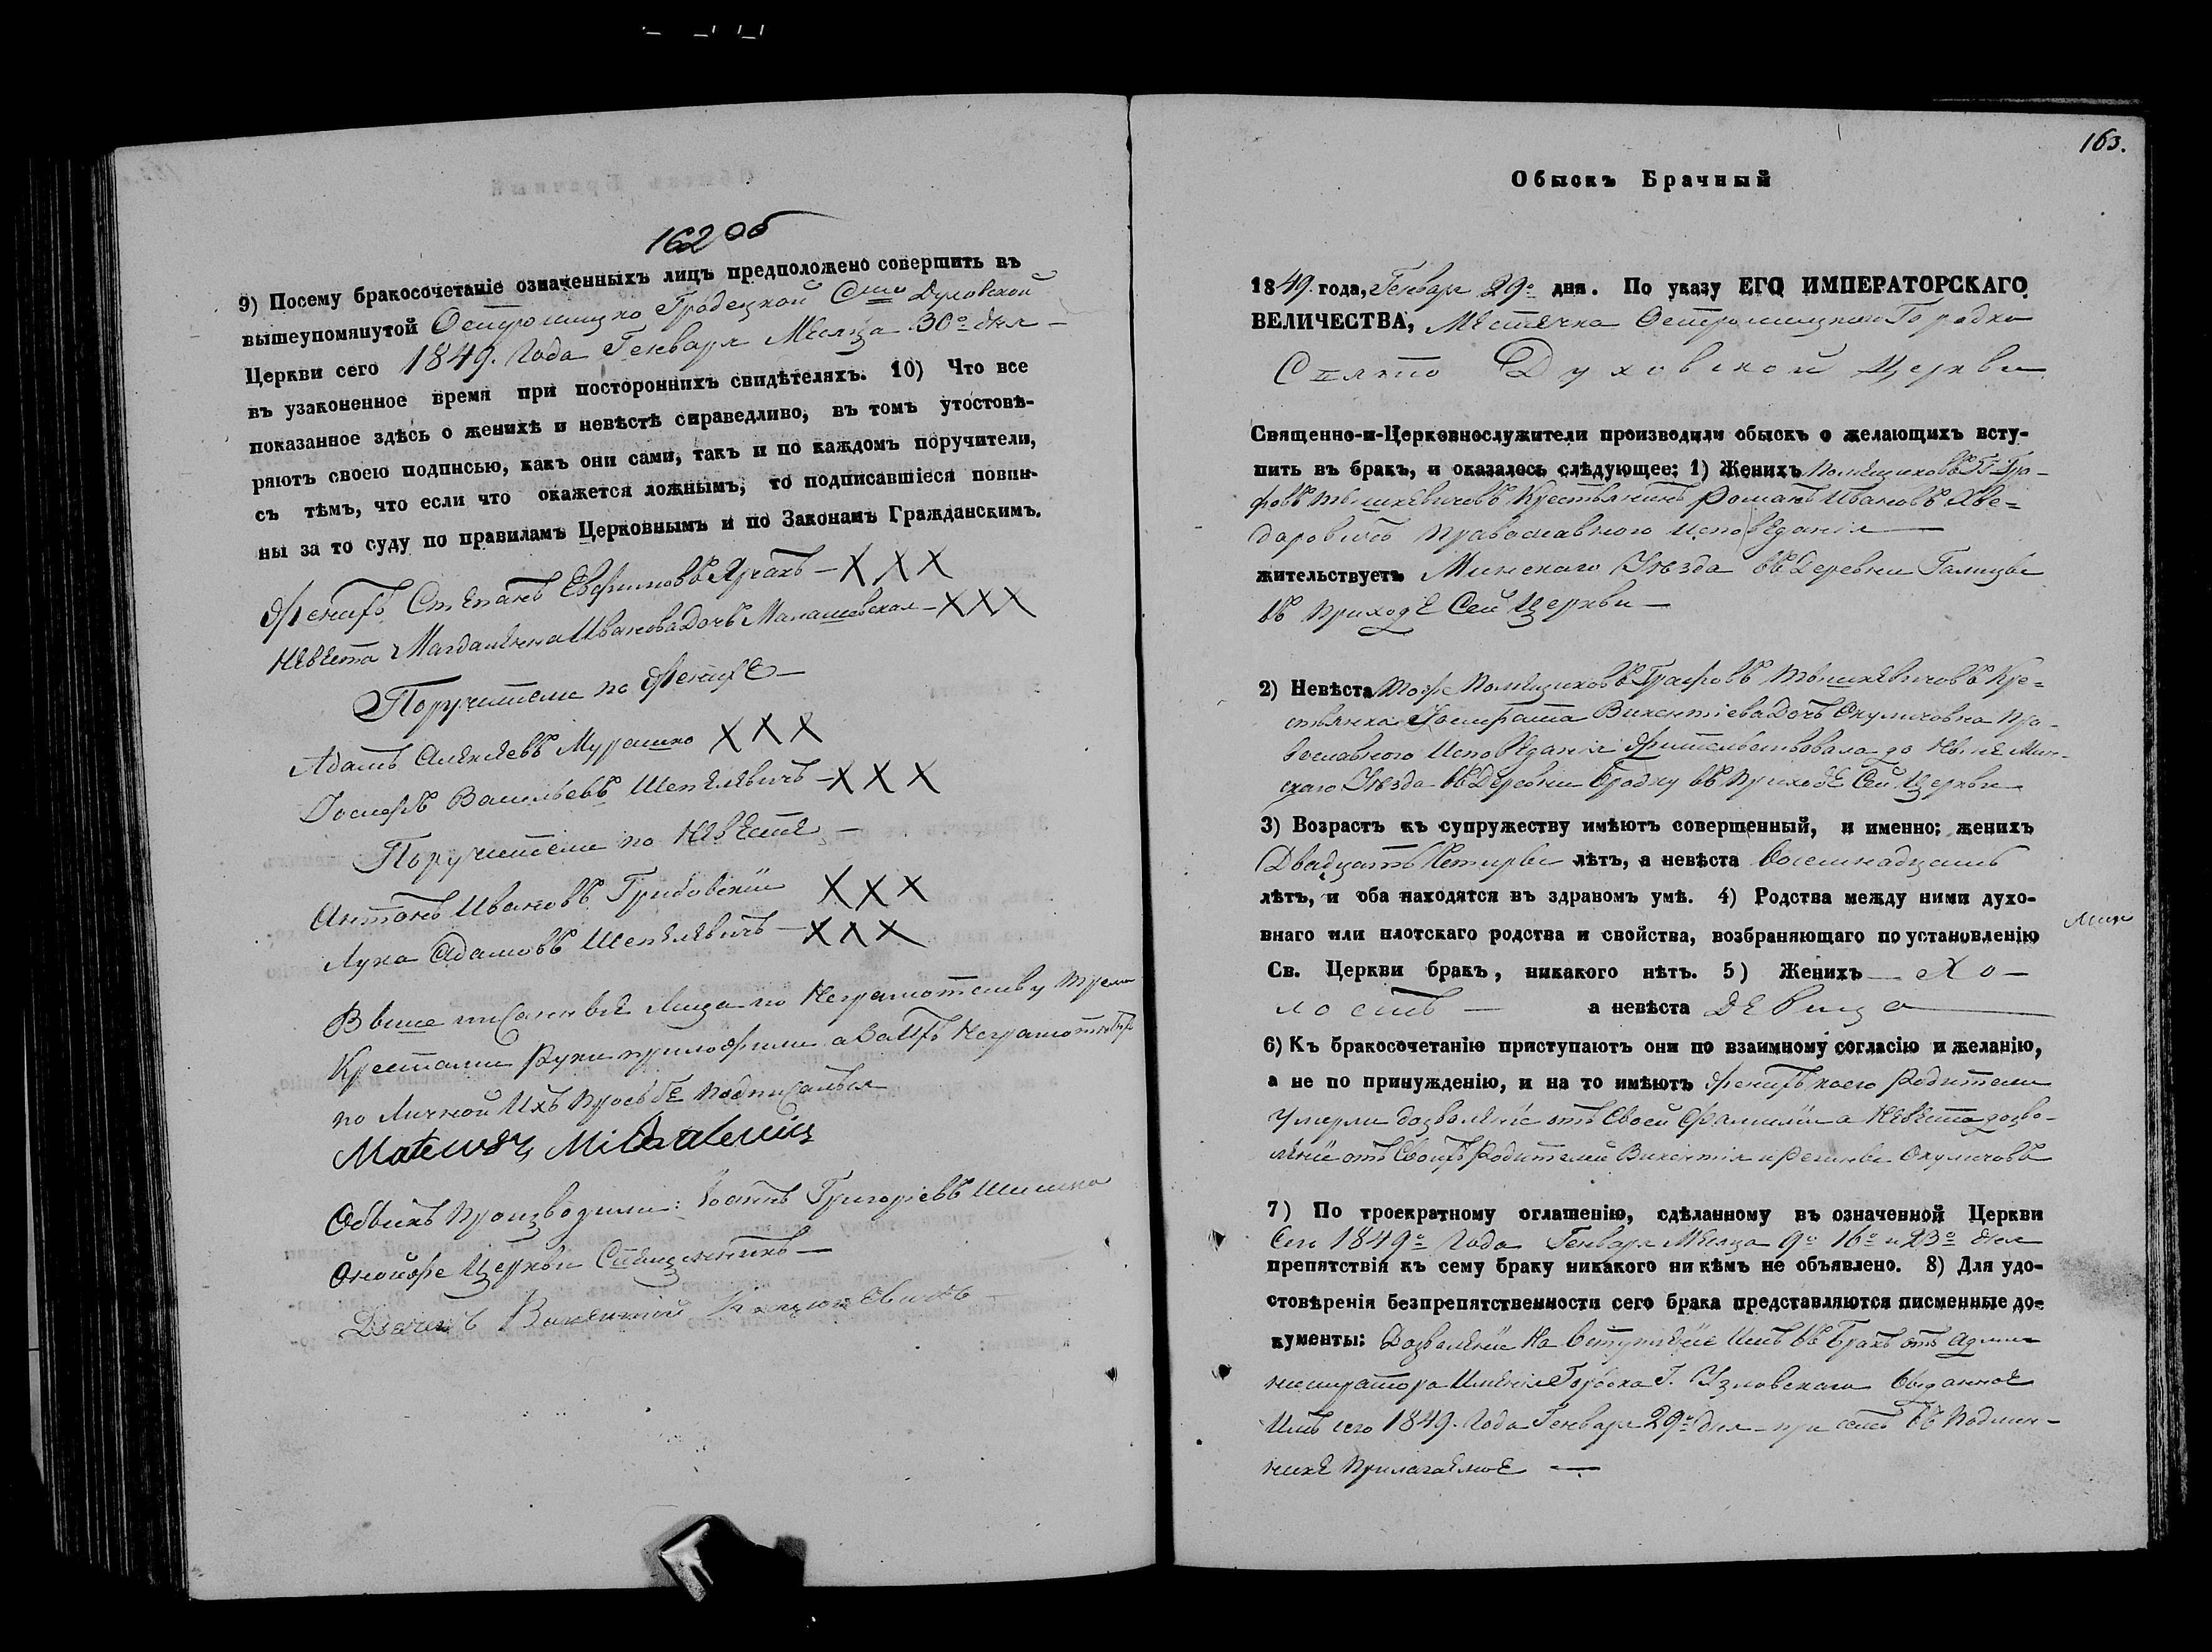 162 об
9) Посему бракосочетаніе означенныхъ лицъ предположено совершить въ
вышеупомянутой Острошицко Градецкой Сто Духовской
Церкви сего 1849. Года Генваря Месяца 30º дня —
въ узаконенное время при постороннихъ свидѣтеляхъ. 10) Что все
показанное здѣсь о женихѣ и невѣстѣ справедливо, въ томъ утостовѣ-
ряютъ своею подписью, какъ они сами, такъ и по каждомъ поручители,
съ тѣмъ, что если что окажется ложнымъ, то подписавшіеся повин-
ны за то суду по правиламъ Церковнымъ и по Законамъ Гражданскимъ.
Женихъ Степанъ Евфимовъ — X X X
Невеста Магдалѣнна Иванова Дочь Малашевская — X X X
Поручители по Женихе —
Адамъ Алексѣевъ Мурашко X X X
Іосифъ Васильевъ Шепелевичъ — X X X
Поручители по Невесте —
Антонъ Ивановъ Грибовскій X X X
Лука Адамовъ Шепелевичъ — X X X
Выше писанные Лица по Неграмотству трема
Крестами Руки приложили а Вмѣсто Неграмотныхъ
по Личной Ихъ Просьбе подписался
Mateusz Michalewicz
Обыскъ Производили: Іоаннъ Григоріевъ Шишко
Оной же Церкви Священникъ —
Дьячекъ Викентій
163.
Обыскъ Брачный
1849. года, Генваря 29º дня. По указу ЕГО ИМПЕРАТОРСКАГО
ВЕЛИЧЕСТВА, Местечка Острошицкого Городка
Свято Духовской Церкви
Священно-и-Церковнослужители производили обыскъ о желающихъ всту-
пить въ бракъ, и оказалось слѣдующее: 1) Женихъ Помещиковъ Гг. Гра-
фовъ Тышкевичовъ Крестьянинъ Романъ Ивановъ Хве-
даровичъ Православного Исповеданія —
жительствуетъ Минскаго Уѣзда въ Деревни Галицы
въ Приходе Сей Церкви —
2) Невѣста Тоже Помещиковъ Графовъ Тышкевичовъ Кре=
стьянка Іосифата Викентіева Дочь Окуличовна Пра-
вославного Исповеданія Жительствовала до Ныне Мин-
скаго Уѣзда въ Деревни Бродку въ Приходе Сей Церкви
3) Возрастъ къ супружеству имѣютъ совершенный, и именно; женихъ
Двадцать Четыры лѣтъ, а невѣста Восемнадцать
лѣтъ, и оба находятся въ здравомъ умѣ. 4) Родства между ними духо-
внаго или плотскаго родства и свойства, возбраняющаго по установленію
Св. Церкви бракъ, никакого нѣтъ. 5) Женихъ — Хо —
лостъ — а невѣста Девица —
6) Къ бракосочетанію приступаютъ они по взаимному согласію и желанію,
а не по принужденію, и на то имѣютъ Женихъ коего Родители
Умерли дозволеніе отъ Своей Фамиліи а Невеста дозво-
леніе отъ Своихъ Родителей Викентія и Регины Окуличовъ
7) По троекратному оглашенію, сдѣланному въ означенной Церкви
Сего 1849º Года Генваря Месяца 9º 16º и 23º дня
препятствія къ сему браку никакого ни кѣмъ не объявлено. 8) Для удо-
стовѣренія безпрепятственности сего брака представляются писменные до-
кументы: Дозволеніе На Вступленіе Имъ въ Бракъ отъ Адми-
нистратора Именія Городка Г. Узловскаго Выданное
Имъ сего 1849. Года Генваря 29º дня при семъ въ Подлин-
нике Прилагаемое —